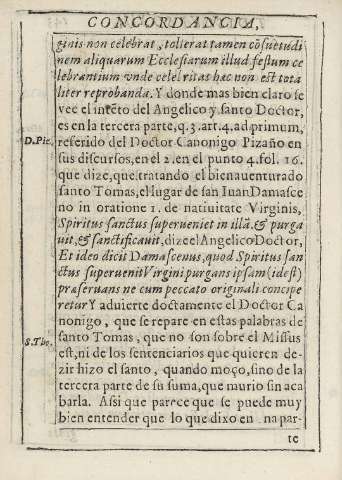 CONCORDANCIA,
ginis non celebrat, tollerat tamen cõsuetudi
nem aliquarum Ecclesiarum illud festum ce
lebrantium vnde celebritas hac non est tota
liter reprobanda. Y donde mas bien claro se
vee el intẽto del Angelico y santo Doctor,
es en la tercera parte, q. 3. art. 4. ad primum,
D. Piç. referido del Doctor Canonigo Pizaño en
sus discursos, en el 2. en el punto 4. fol. 16.
que dize, que tratando el bienauenturado
santo Tomas, el lugar de san Iuan Damasce
no in oratione 1. de natiuitate Virginis,
Spiritus sanctus superueniet in illã, & purga
uit, & sanctificauit, dize el Angelico Doctor,
Et ideo dicit Damascenus, quod Spiritus san
ctus superuenit Virgini purgans ipsam (idest)
præseruans ne cum peccato originali concipe
retur Y aduierte doctamente el Doctor Ca
nonigo, que se repare en estas palabras de
S. Tho. santo Tomas, que no son sobre el Missus
est, ni de los sentenciarios que quieren de-
zir hizo el santo, quando moço, sino de la
tercera parte de su suma, que murio sin aca
barla. Assi que parece que se puede muy
bien entender que lo que dixo en na par-
te